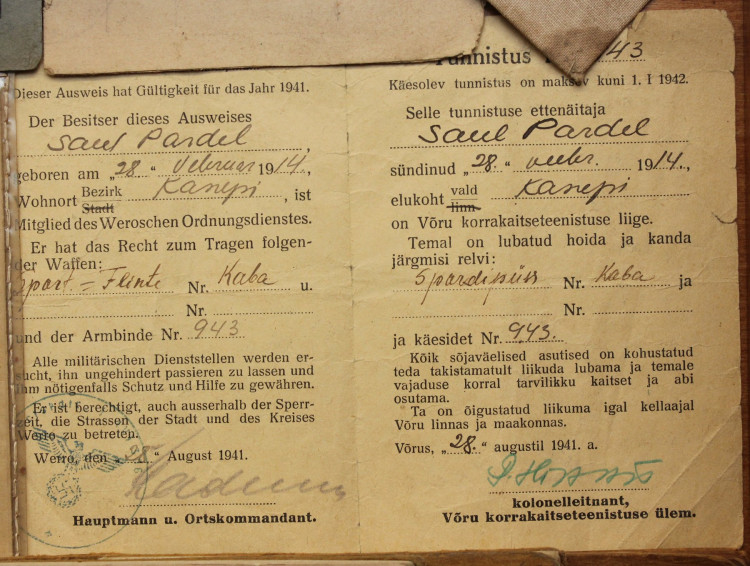 Dieser Ausweis hat Gültigkeit für das Jahr 1941.
Der Besitser dieses Ausweises
Saul Pardel,
geboren am „28." Februar 1914.,
Wohnort Bezirk Stadt Kanepi, ist
Mitglied des Weroschen Ordnungsdienstes.
Er hat das Recht zum Tragen folgen-
der Waffen:
Sport = Flinte Nr. Kaba u.
Nr.
und der Armbinde Nr. 943
Alle militärischen Dienststellen werden er-
sucht, ihn ungehindert passieren zu lassen und
ihm nötigenfalls Schutz und Hilfe zu gewähren.
Er ist berechtigt, auch ausserhalb der Sperr-
zeit, die Strassen der Stadt und des Kreises
Werro zu betreten.
Werro, den „28." August 1941.
Hauptmann u. Ortskommandant.
Tunnistus 943
Käesolev tunnistus on maksev kuni 1. I 1942.
Selle tunnistuse ettenäitaja
Saul Pardel
sündinud „28." veebr. 1914.,
elukoht vald linn Kanepi
on Võru korrakaitseteenistuse liige.
Temal on lubatud hoida ja kanda
järgmisi relvi:
Spordipüss Nr. Kaba ja
Nr.
ja käesidet Nr. 943.
Kõik sõjaväelised asutised on kohustatud
teda takistamatult liikuda lubama ja temale
vajaduse korral tarvilikku kaitset ja abi
osutama.
Ta on õigustatud liikuma igal kellaajal
Võru linnas ja maakonnas.
Võrus, „28." augustil 1941. a.
kolonelleitnant,
Võru korrakaitseteenistuse ülem.